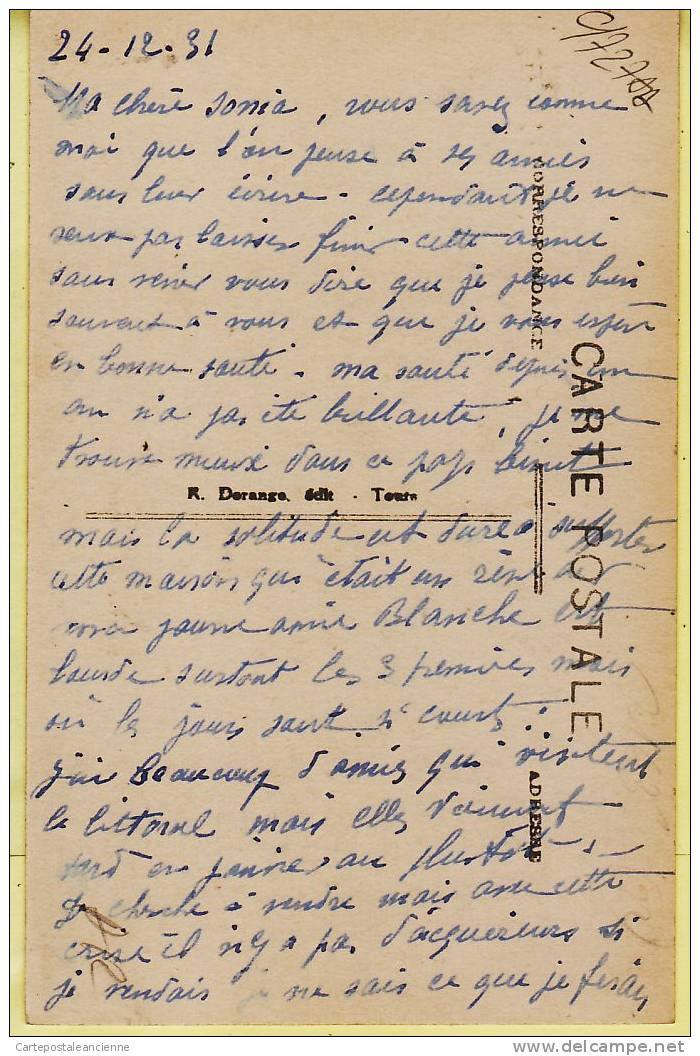 24-12-31
C/72700
Ma chère Sonia, vous savez comme
moi que l'on pense à ses amies
sans leur écrire - cependant je ne
veux pas laisser finir cette année
sans venir vous dire que je pense bien
souvent à vous et que je vous espère
en bonne santé - ma santé depuis un
an n'a pas été brillante, je me
trouve mieux dans ce pays
R. Dorange, édit - Tours
mais la solitude est dure à supporter
cette maison qui était un rêve
ma jeune amie Blanche est
lourde surtout les 3 premiers mois
où les jours sont si courts!
j'ai beaucoup d'amies qui visitent
le littoral mais elles viennent
tard en janvier au plus tôt
Je cherche à vendre mais avec cette
crise il n'y a pas d'acquéreurs si
je vendais je ne sais ce que je ferais
CORRESPONDANCE
CARTE POSTALE
ADRESSE
Cartepostaleancienne
www.delcampe.net